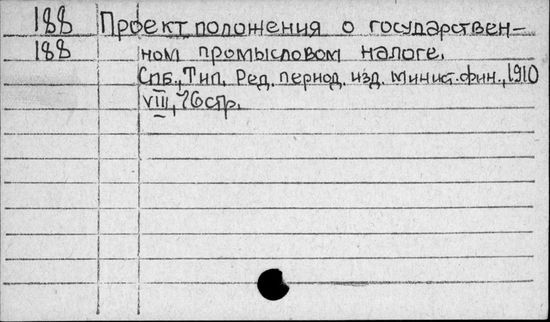 188 Проект положения о государствен-
188 ном промысловом налоге.
Спб., Тип. Ред. период. изд. минист. фин., 1910
VIII, 76 стр.